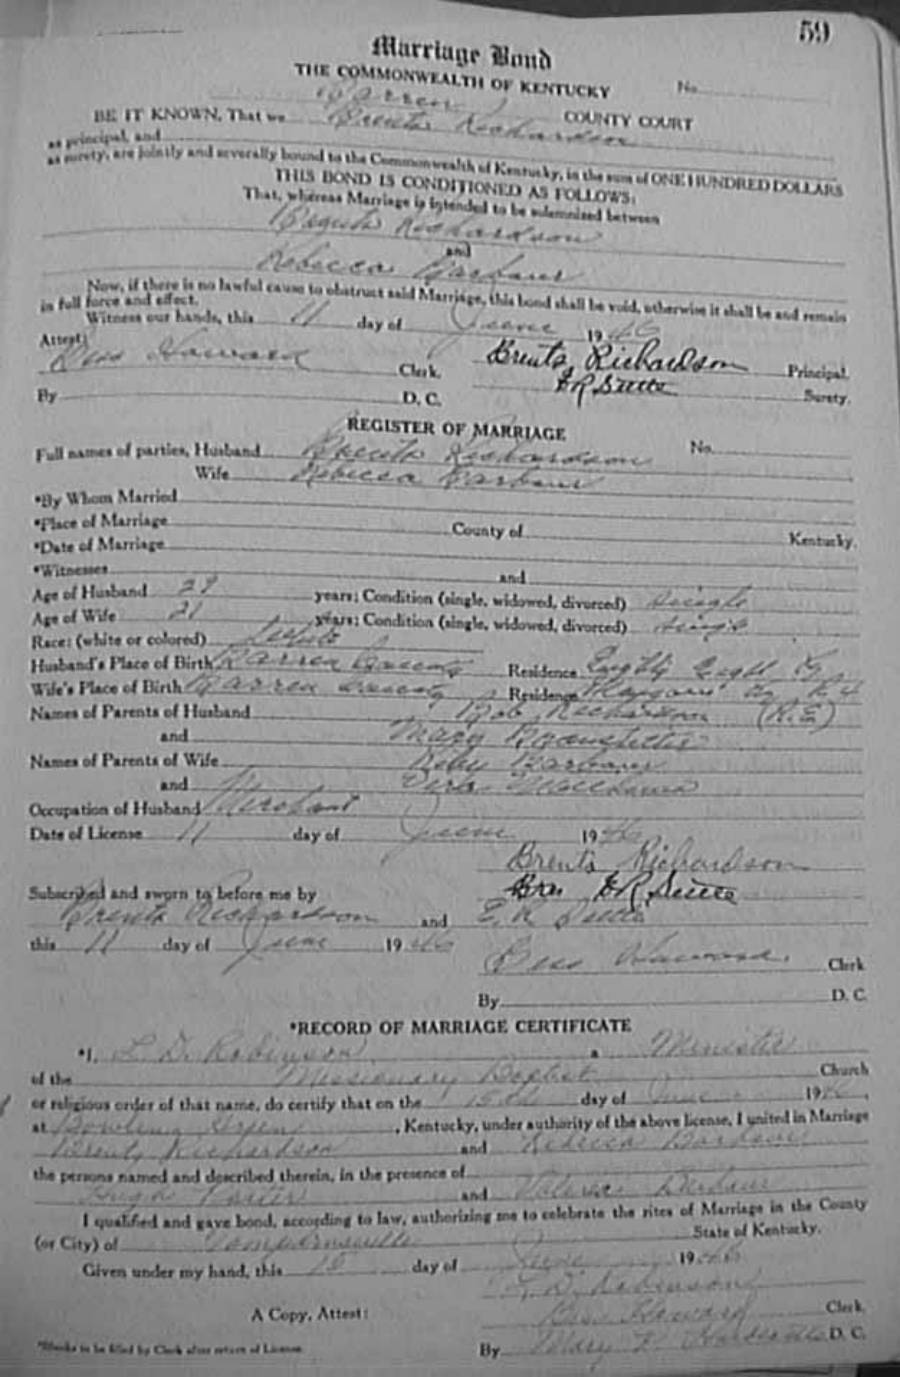 59
Marriage Bond
THE COMMONWEALTH OF KENTUCKY No.
COUNTY COURT
BE IT KNOWN, That we Brents Richardson
as principal, and
as surety, are jointly and severally bound to the Commonwealth of Kentucky, in the sum of ONE HUNDRED DOLLARS
THIS BOND IS CONDITIONED AS FOLLOWS:
That, whereas Marriage is intended to be solemnized between
Brents Richardson
and
Rebecca Barbour
Now, if there is no lawful cause to obstruct said Marriage, this bond shall be void, otherwise it shall be and remain
in full force and effect.
Witness our hands, this 11 day of June 1946
Attest: Brents Richardson Principal.
Bess Howard Clerk.
By D. C. Surety.
REGISTER OF MARRIAGE
Full names of parties, Husband Brents Richardson No.
Wife Rebecca Barbour
*By Whom Married
*Place of Marriage County of Kentucky.
*Date of Marriage
*Witnesses and
Age of Husband 29 years; Condition (single, widowed, divorced) single
Age of Wife 21 years; Condition (single, widowed, divorced) single
Race: (white or colored) White
Husband's Place of Birth County Residence Eighty Eight Ky
Wife's Place of Birth County Residence Ky R 4
Names of Parents of Husband Bob Richardson (R.E)
and Mary
Names of Parents of Wife Barbour
and
Occupation of Husband Merchant
Date of License 11 day of June 1946
Brents Richardson
Subscribed and sworn to before me by
Brents Richardson and E. R.
this 11 day of June 1946
Bess Howard Clerk
By D. C.
*RECORD OF MARRIAGE CERTIFICATE
*I, L. D. Robinson a Minister
of the Missionary Baptist Church
or religious order of that name, do certify that on the 15th day of June 1946,
at Bowling Green, Kentucky, under authority of the above license, I united in Marriage
Brents Richardson and Rebecca Barbour
the persons named and described therein, in the presence of
Hugh and Barbour
I qualified and gave bond, according to law, authorizing me to celebrate the rites of Marriage in the County
(or City) of Tompkinsville State of Kentucky.
Given under my hand, this 15 day of June 1946
L. D. Robinson
A Copy, Attest: Bess Howard Clerk.
*Blanks to be filled by Clerk after return of License. By Mary D. C.